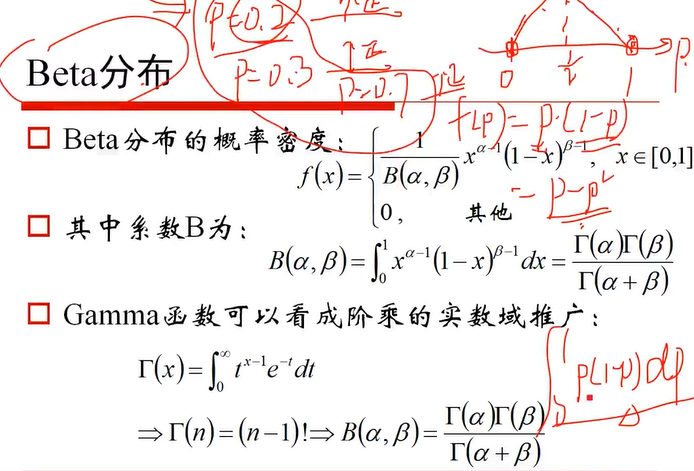 p=0.2
Beta分布
p=0.3
p=0.7
0 1/2 1 p
f(p)=p·(1-p)
=p-p²
Beta分布的概率密度:
f(x)={ 1/B(α,β) x^(α-1)(1-x)^(β-1), x∈[0,1]
0, 其他
其中系数B为:
B(α,β)=∫₀¹x^(α-1)(1-x)^(β-1)dx=Γ(α)Γ(β)/Γ(α+β)
Gamma函数可以看成阶乘的实数域推广:
Γ(x)=∫₀^∞ t^(x-1)e^(-t)dt
∫₀¹ p(1-p)dp
⇒Γ(n)=(n-1)!⇒B(α,β)=Γ(α)Γ(β)/Γ(α+β)